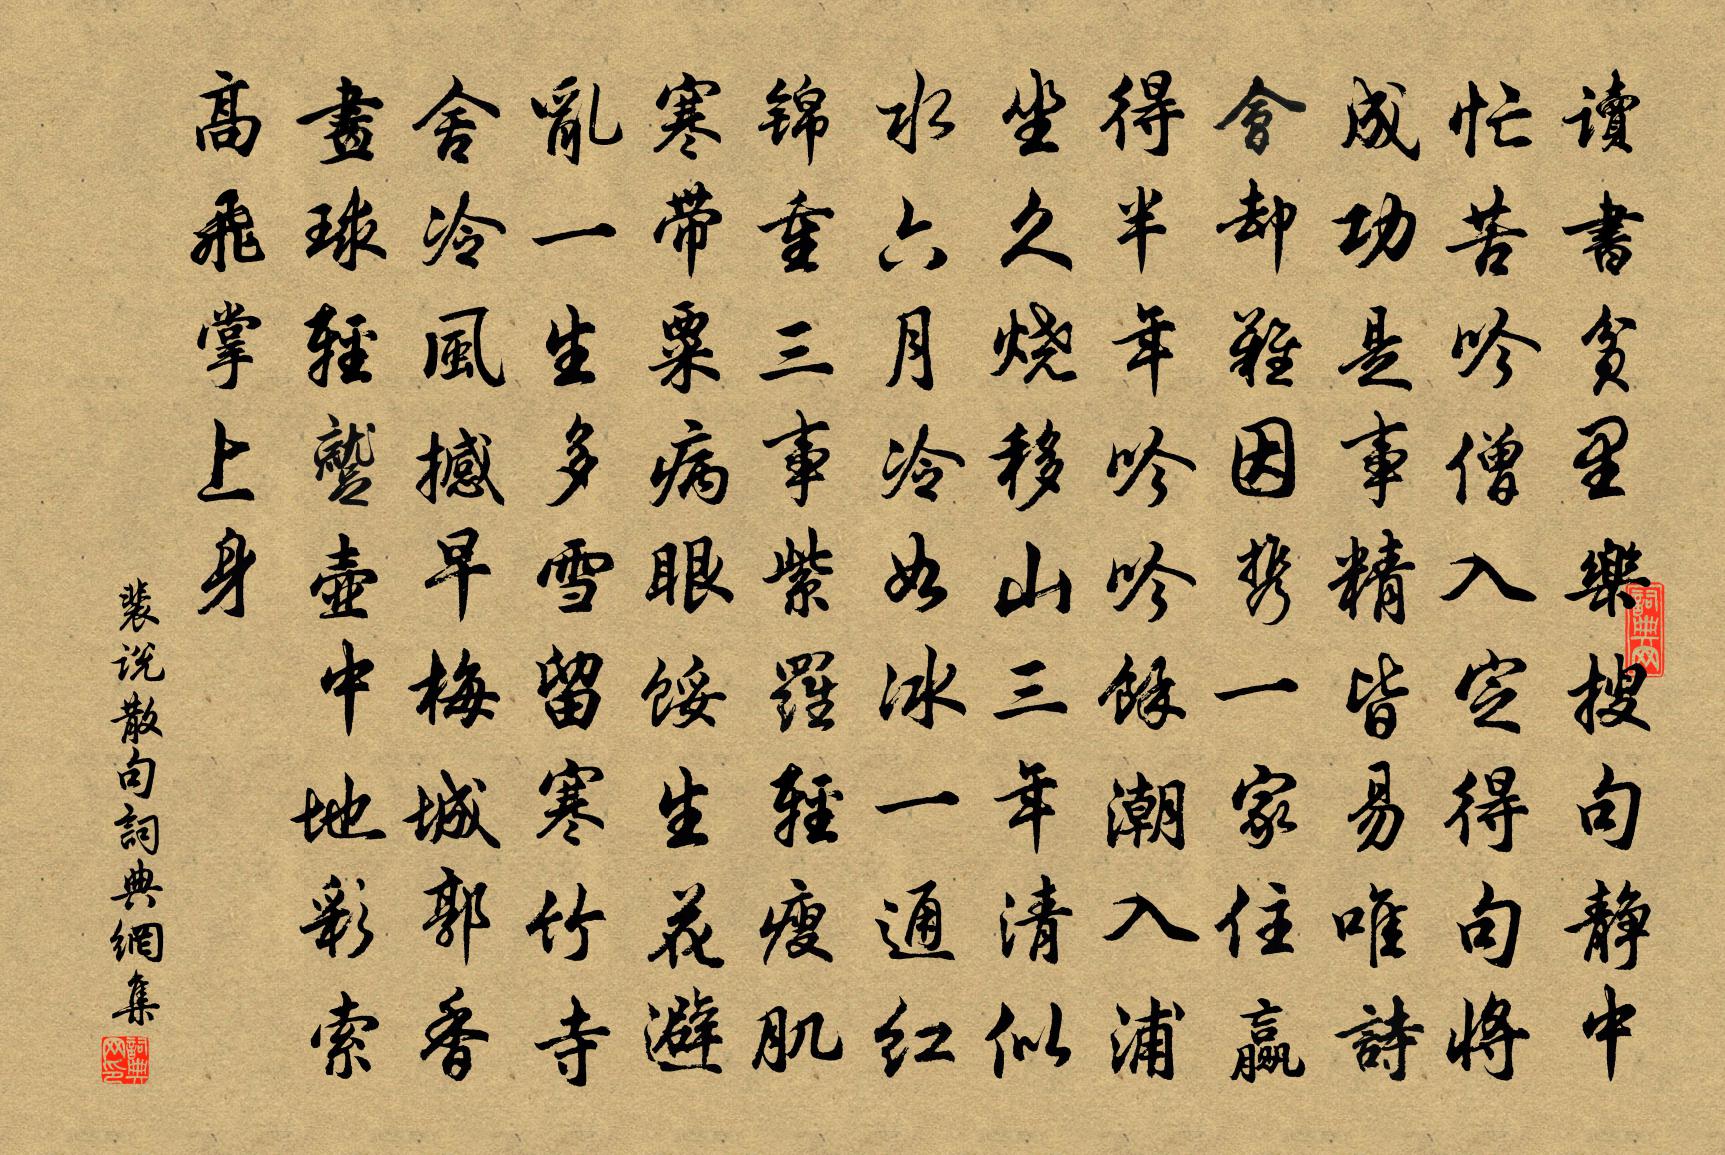 讀書貧里樂搜句静中
忙苦吟僧入定得句将
成功是事精皆易唯詩
會却難因携一家住贏
得半年吟吟餘潮入浦
坐久烧移山三年清似
水六月冷如冰一通红
锦重三事紫羅輕瘦肌
寒带粟病眼餒生花避
亂一生多雪留寒竹寺
舍冷風撼早梅城郭香
畫球輕蹙壺中地彩索
高飛掌上身
裴说散句詞典網集
詞典网
詞典网印